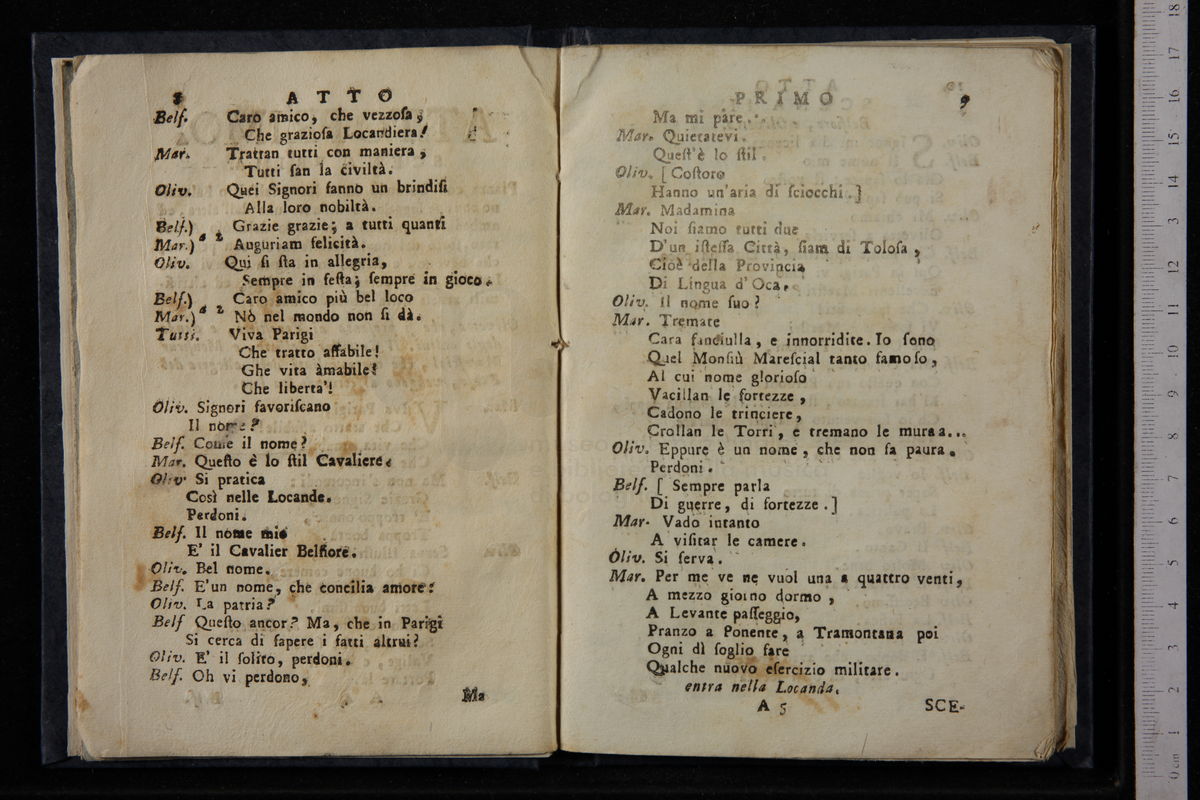 8 ATTO
Belf. Caro amico, che vezzoſa,
Che grazioſa Locandiera!
Mar. Trattan tutti con maniera,
Tutti ſan la civiltà.
Oliv. Quei Signori fanno un brindiſi
Alla loro nobiltà.
Belf.) Grazie grazie; a tutti quanti
Mar.) a 2 Auguriam felicità.
Oliv. Qui ſi ſta in allegria,
Sempre in feſta; ſempre in gioco.
Belf.) Caro amico più bel loco
Mar.) a 2 Nò nel mondo non ſi dà.
Tutti. Viva Parigi
Che tratto affabile!
Ghe vita àmabile!
Che liberta'!
Oliv. Signori favoriſcano
Il nome?
Belf. Come il nome?
Mar. Queſto è lo ſtil Cavaliere.
Oliv. Si pratica
Così nelle Locande.
Perdoni.
Belf. Il nome mio
E' il Cavalier Belfiore.
Oliv. Bel nome.
Belf. E'un nome, che concilia amore!
Oliv. La patria?
Belf Queſto ancor? Ma, che in Parigi
Si cerca di ſapere i fatti altrui?
Oliv. E' il ſolito, perdoni.
Belf. Oh vi perdono,
Ma
PRIMO 9
Ma mi pare..
Mar. Quietatevi.
Queſt'è lo ſtil.
Oliv. [ Coſtoro
Hanno un'aria di ſciocchi.]
Mar. Madamina
Noi ſiamo tutti due
D'un iſteſſa Città, ſiam di Toloſa,
Cioè della Provincia
Di Lingua d'Oca.
Oliv. il nome ſuo?
Mar. Tremate
Cara fanciulla, e innorridite. Io ſono
Quel Monſiù Mareſcial tanto famoſo,
Al cui nome glorioſo
Vacillan le fortezze,
Cadono le trinciere,
Crollan le Torri, e tremano le muraa...
Oliv. Eppure è un nome, che non fa paura.
Perdoni.
Belf. [ Sempre parla
Di guerre, di fortezze.]
Mar. Vado intanto
A viſitar le camere.
Oliv. Si ſerva.
Mar. Per me ve ne vuol una a quattro venti,
A mezzo giorno dormo,
A Levante paſſeggio,
Pranzo a Ponente, a Tramontana poi
Ogni dì ſoglio fare
Qualche nuovo eſercizio militare.
entra nella Locanda.
A 5 SCE-